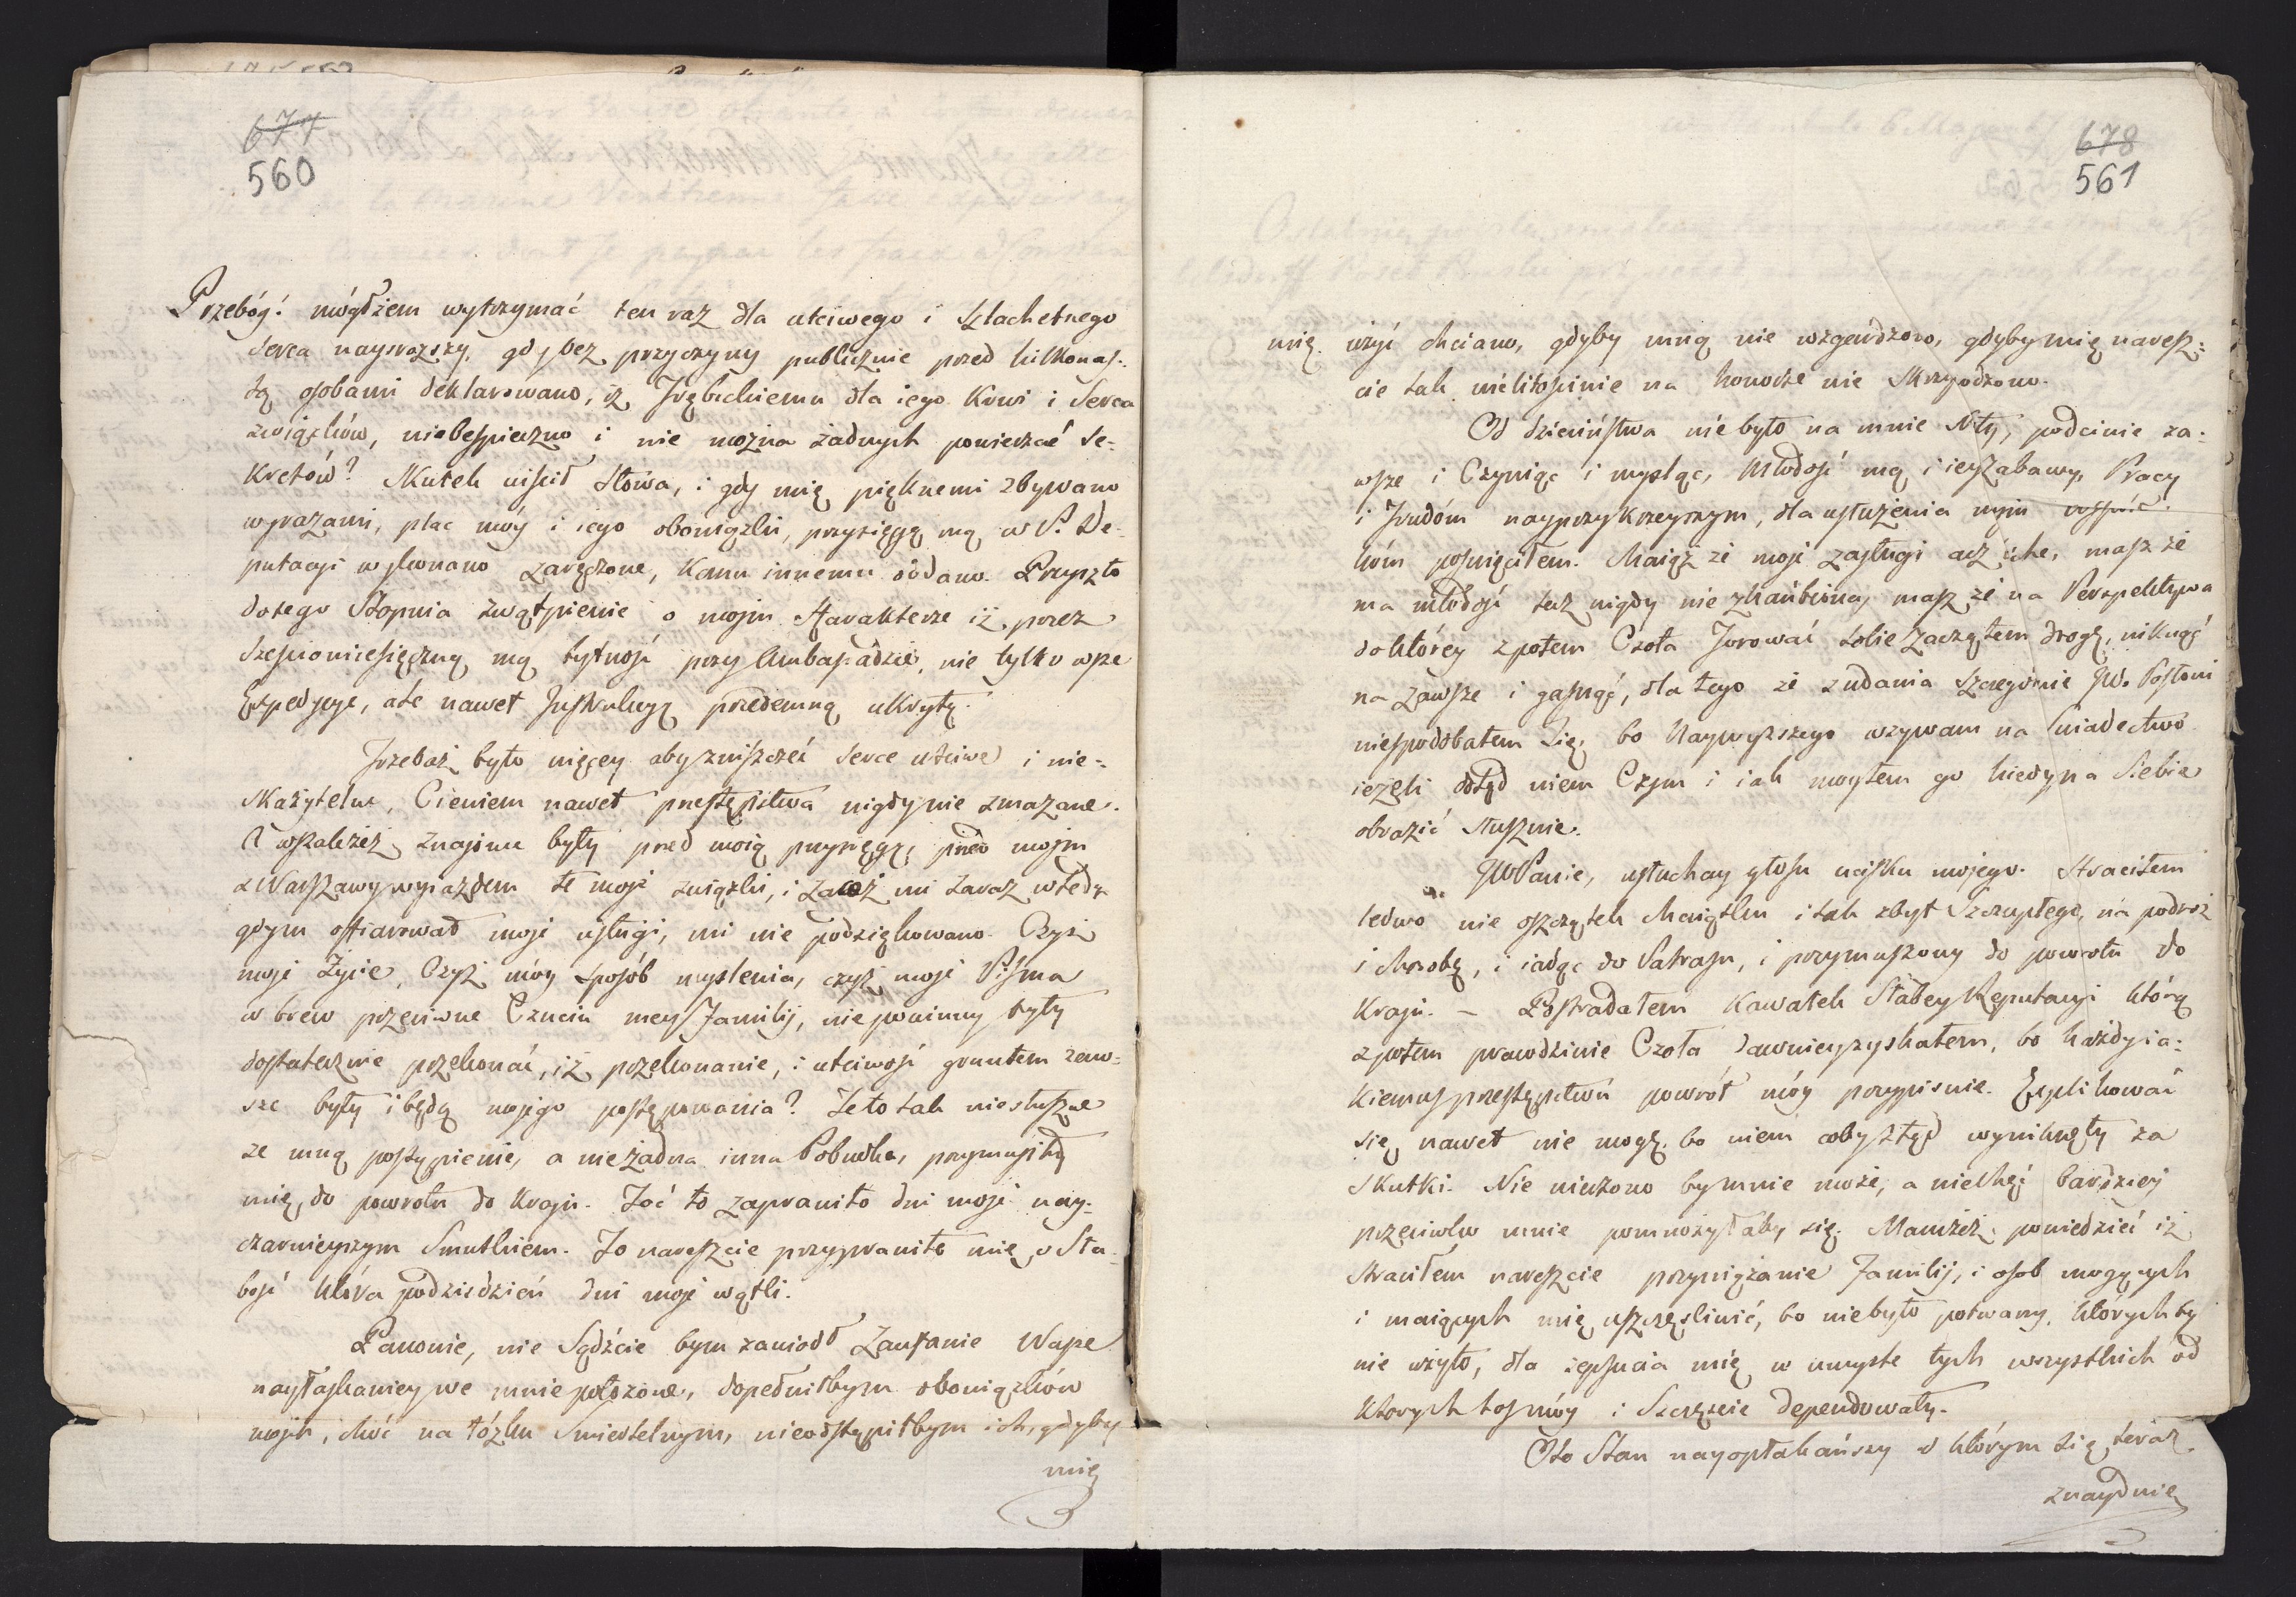 677
560
Przebóg! mógłżem wytrzymać ten raz dla utciwego i szlachetnego
serca naysroższy, gdy bez przyczyny publicznie przed kilkonas-
tą osobami deklarowano, iż Trębickiemu dla iego Krwi i Serca
związków, niebespieczno i nie można żadnych powierzać se-
kretów? Skutek uiścił słowa, i gdy mię pięknemi zbywano
wyrazami, plac móy i iego obowiązki, przysięgą mą w P. De-
putacyi wykonano zaręczone, Komu innemu oddano. Przyszło
do tego Stopnia zwątpienie o mojm Harakterze iż przez
Sześciomiesięczną mą bytność przy Ambassadzie, nie tylko wsze
Expedycye, ale nawet Instrukcyą przedemną ukryto.
Trzebaż było więcey aby zniszczeć serce utciwe i nie-
skażytelne, Cieniem nawet przestępstwa nigdy nie zmazane.
A wszakżeż znajome były przed moią przysięgą, przed mojm
z Warszawy wyiazdem te moje związki, i zacóż mi zaraz wtedy
gdym offiarował moje usługi, mi nie podziękowano. Czyż
moje życie, Czyż móy sposób myslenia, czyż moje Pisma
w brew przeciwne Czuciu mey Familij, nie powinny były
dostatecznie przekonać, iż przekonanie, i utciwość gruntem zaw-
sze były i będą mojego postępowania? Że to tak niesłuszne
ze mną postąpienie, a nie żadna inna Pobudka, przymusiło
mię do powrotu do Kraju. Toć to zaprawiło dni moje nay-
czarnieyszym Smutkiem. To nareszcie przyprawiło mię o Sła-
bość która podziśdzień dni moje wątli.
Panowie, nie Sądźcie bym zawiódł Zaufanie Wasze
nayłaskawiey we mnie położone, dopełniłbym obowiązków
mojch, choć na łóżku śmiertelnym, nieodstąpiłbym ich, gdyby
mię
678
561
mię użyć chciano, gdyby mną nie wzgardzono, gdyby mię naresz-
cie tak nielitośnie na honorze nie skrzywdzono.
Od dzieciństwa nie było na mnie Noty, poczciwie za-
wsze i Czyniąc i mysląc, Młodość mą i iey zabawy, Pracy
i Trudóm nayprzykrzeyszym, dla usłużenia mym
poświęciłem. Maiąż że moje zasługi acz iche, masz że
ma młodość też nigdy nie zhańbiona, masz że na Perspektywa
do którey z potem Czoła Torować sobie zacząłem drogę, niknąć
na zawsze i gasnąć, dla tego że z udania szczególnie JW. Posłowi
niespodobałem się, bo Naywyższego wzywam na Świadectwo
ieżeli dotąd wiem Czym i iak mogłem go kiedy na Siebie
obrazić słusznie.
JWPanie, usłuchay głosu ucisku mojego. Straciłem
ledwo nie oszczętek Maiątku i tak zbyt Szczupłego, na podróż
i chorobę, i iadąc do Satrasu, i przymuszony do powrotu do
Kraju. – Postradałem Kawałek Słabey Reputacyi którą
z potem prawdziwie Czoła dawniey zyskałem, bo każdy ia-
kiemuś przestępstwu powrót móy przypisuie. Explikować
się nawet nie mogę, bo wiem coby ztąd wyniknęły za
skutki. Nie wierzono by mnie może, a niechęć bardziey
przeciwko mnie pomnożyłaby się. Mamżeż powiedzieć iż
straciłem nareszcie przywiązanie Familij, i osob mogących
i maiących mię uszczęśliwić, bo niebyło potwarzy, którychby
nie użyto, dla zepsucia mię w umyśle tych wszystkich od
których los móy i Szczęście dependowały.
Oto Stan nayopłakańszy w którym się teraz
znayduię